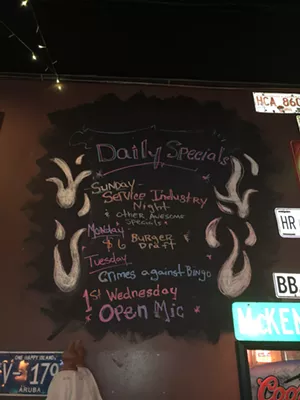 Daily Specials
Sunday
Service Industry
Night
& other Awesome
specials
Monday
$6 Burger &
Draft
Tuesday
Crimes against Bingo
1st Wednesday
Open Mic
HCA 860
HR
BB
McKEN
Coo
ONE HAPPY ISLAND
V 179
ARUBA